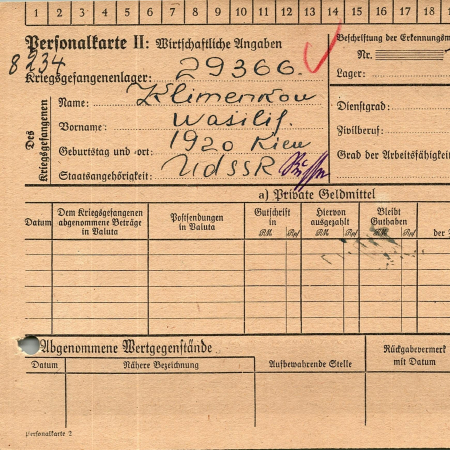 1 2 3 4 5 6 7 8 9 10 11 12 13 14 15 16 17 18
Personalkarte II: Wirtschaftliche Angaben
Beschriftung der Erkennungsm
8234
Nr.
Kriegsgefangenenlager: 29366.
Lager:
Des Kriegsgefangenen
Name: Klimenkow
Vorname: Wasilij.
Dienstgrad:
Geburtstag und -ort: 1920 Kiew
Zivilberuf:
Staatsangehörigkeit: UdSSR
Grad der Arbeitsfähigkeit
a) Private Geldmittel
Datum
Dem Kriegsgefangenen abgenommene Beträge in Valuta
Postsendungen in Valuta
Gutschrift in
RM. Rpf
Hiervon ausgezahlt
RM. Rpf
Bleibt Guthaben
RM. Rpf
der
Abgenommene Wertgegenstände
Datum
Nähere Bezeichnung
Aufbewahrende Stelle
Rückgabevermerk mit Datum
Personalkarte 2